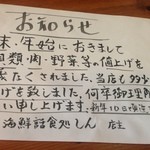 お知らせ
末、年始におきまして
貝類・肉・野菜等の値上げを
たくされました。当店も
げを致しました。何卒御理解
い申し上げます。新年10日頃
海鮮話食処しん 店主